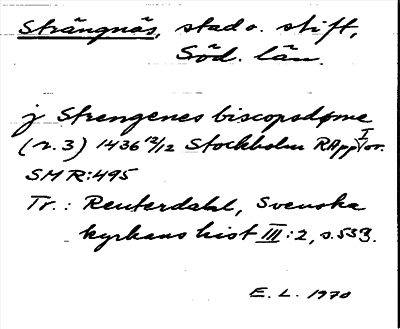 Strängnäs, stad o. stift,
Söd. län.
j Strengenes biscopsdøme
(r. 3) 1436 12/12 Stockholm RApp I or.
SMR:495
Tr.: Reuterdahl, Svenska
kyrkans hist III:2, s. 553.
E. L. 1970